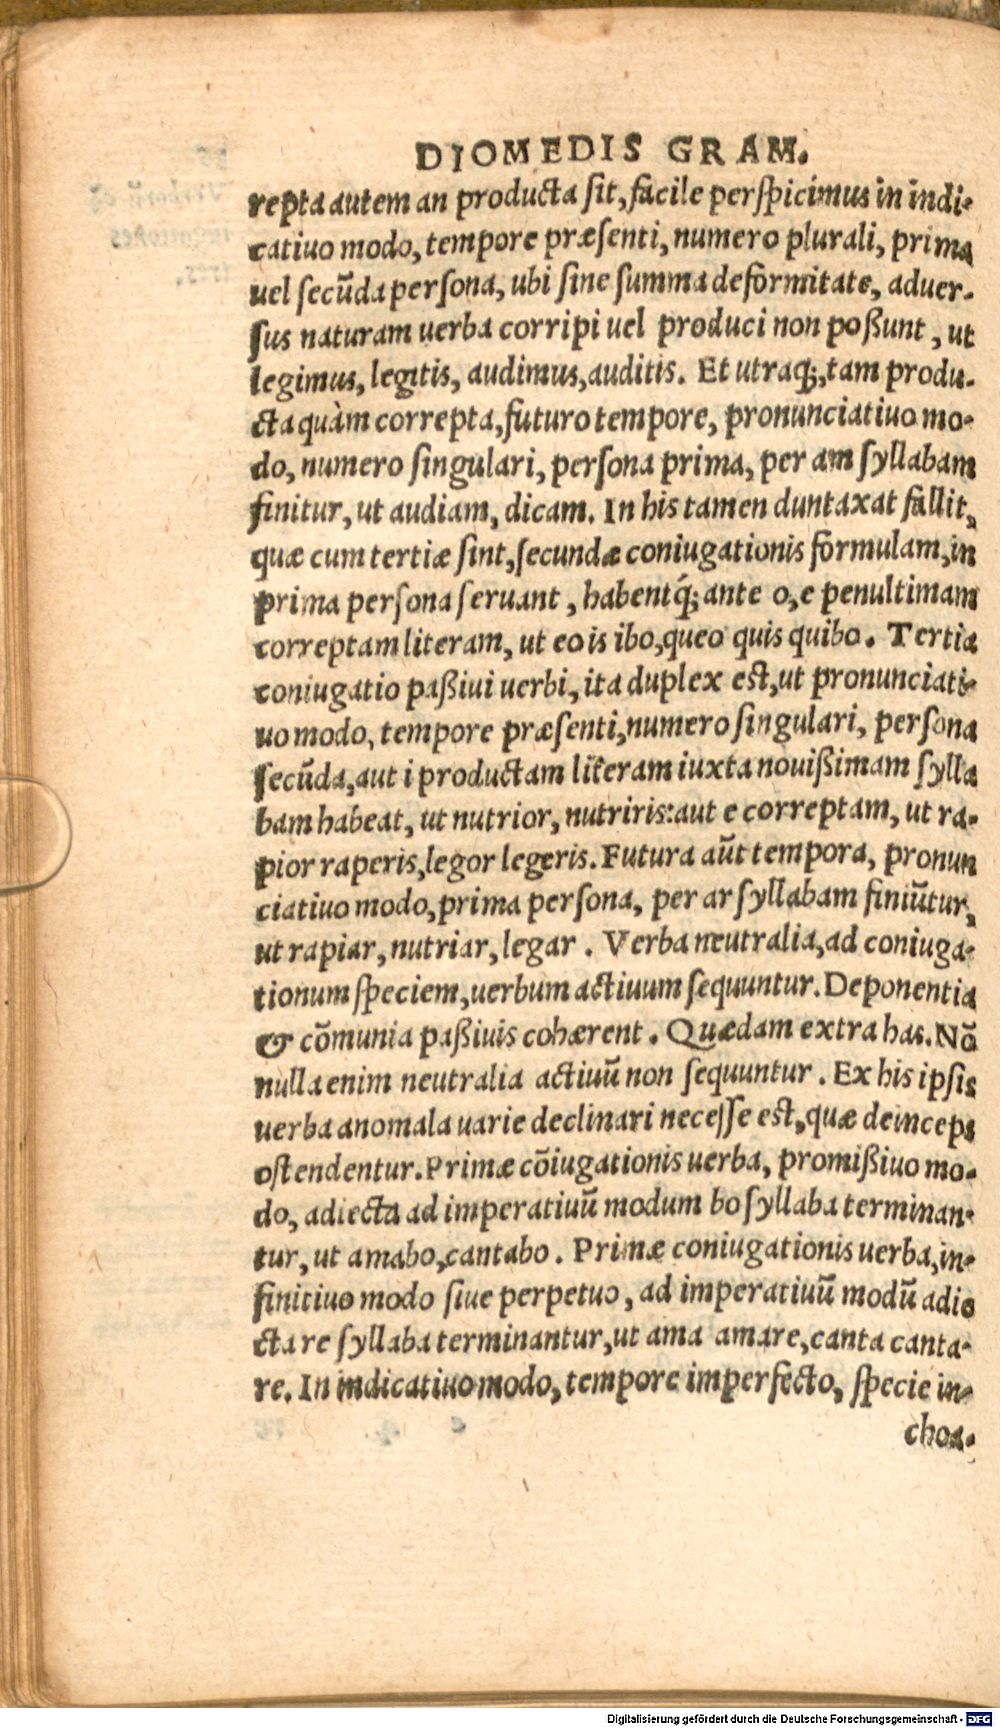 DIOMEDIS GRAM.
repta autem an producta sit, facile perspicimus in indi-
catiuo modo, tempore præsenti, numero plurali, prima
uel secūda persona, ubi sine summa deformitate, aduer-
sus naturam uerba corripi uel produci non poßunt, ut
legimus, legitis, audimus, auditis. Et utraq;, tam produ-
cta quàm correpta, futuro tempore, pronunciatiuo mo-
do, numero singulari, persona prima, per am syllabam
finitur, ut audiam, dicam. In his tamen duntaxat fallit,
quæ cum tertiæ sint, secundæ coniugationis formulam, in
prima persona seruant, habentq́; ante o, e penultimam
correptam literam, ut eo is ibo, queo quis quibo. Tertia
coniugatio paßiui uerbi, ita duplex est, ut pronunciati-
uo modo, tempore præsenti, numero singulari, persona
secūda, aut i productam literam iuxta nouißimam sylla
bam habeat, ut nutrior, nutriris: aut e correptam, ut ra-
pior raperis, legor legeris. Futura aūt tempora, pronun
ciatiuo modo, prima persona, per ar syllabam finiūtur,
ut rapiar, nutriar, legar. Verba neutralia, ad coniuga-
tionum speciem, uerbum actiuum sequuntur. Deponentia
& cōmunia paßiuis cohærent. Quædam extra has. Nō
nulla enim neutralia actiuū non sequuntur. Ex his ipsis
uerba anomala uarie declinari necesse est, quæ deinceps
ostendentur. Primæ cōiugationis uerba, promißiuo mo-
do, adiecta ad imperatiuū modum bo syllaba terminan-
tur, ut amabo, cantabo. Primæ coniugationis uerba, in-
finitiuo modo siue perpetuo, ad imperatiuū modū adie
cta re syllaba terminantur, ut ama amare, canta canta-
re. In indicatiuo modo, tempore imperfecto, specie in-
choa-
Digitalisierung gefördert durch die Deutsche Forschungsgemeinschaft - DFG